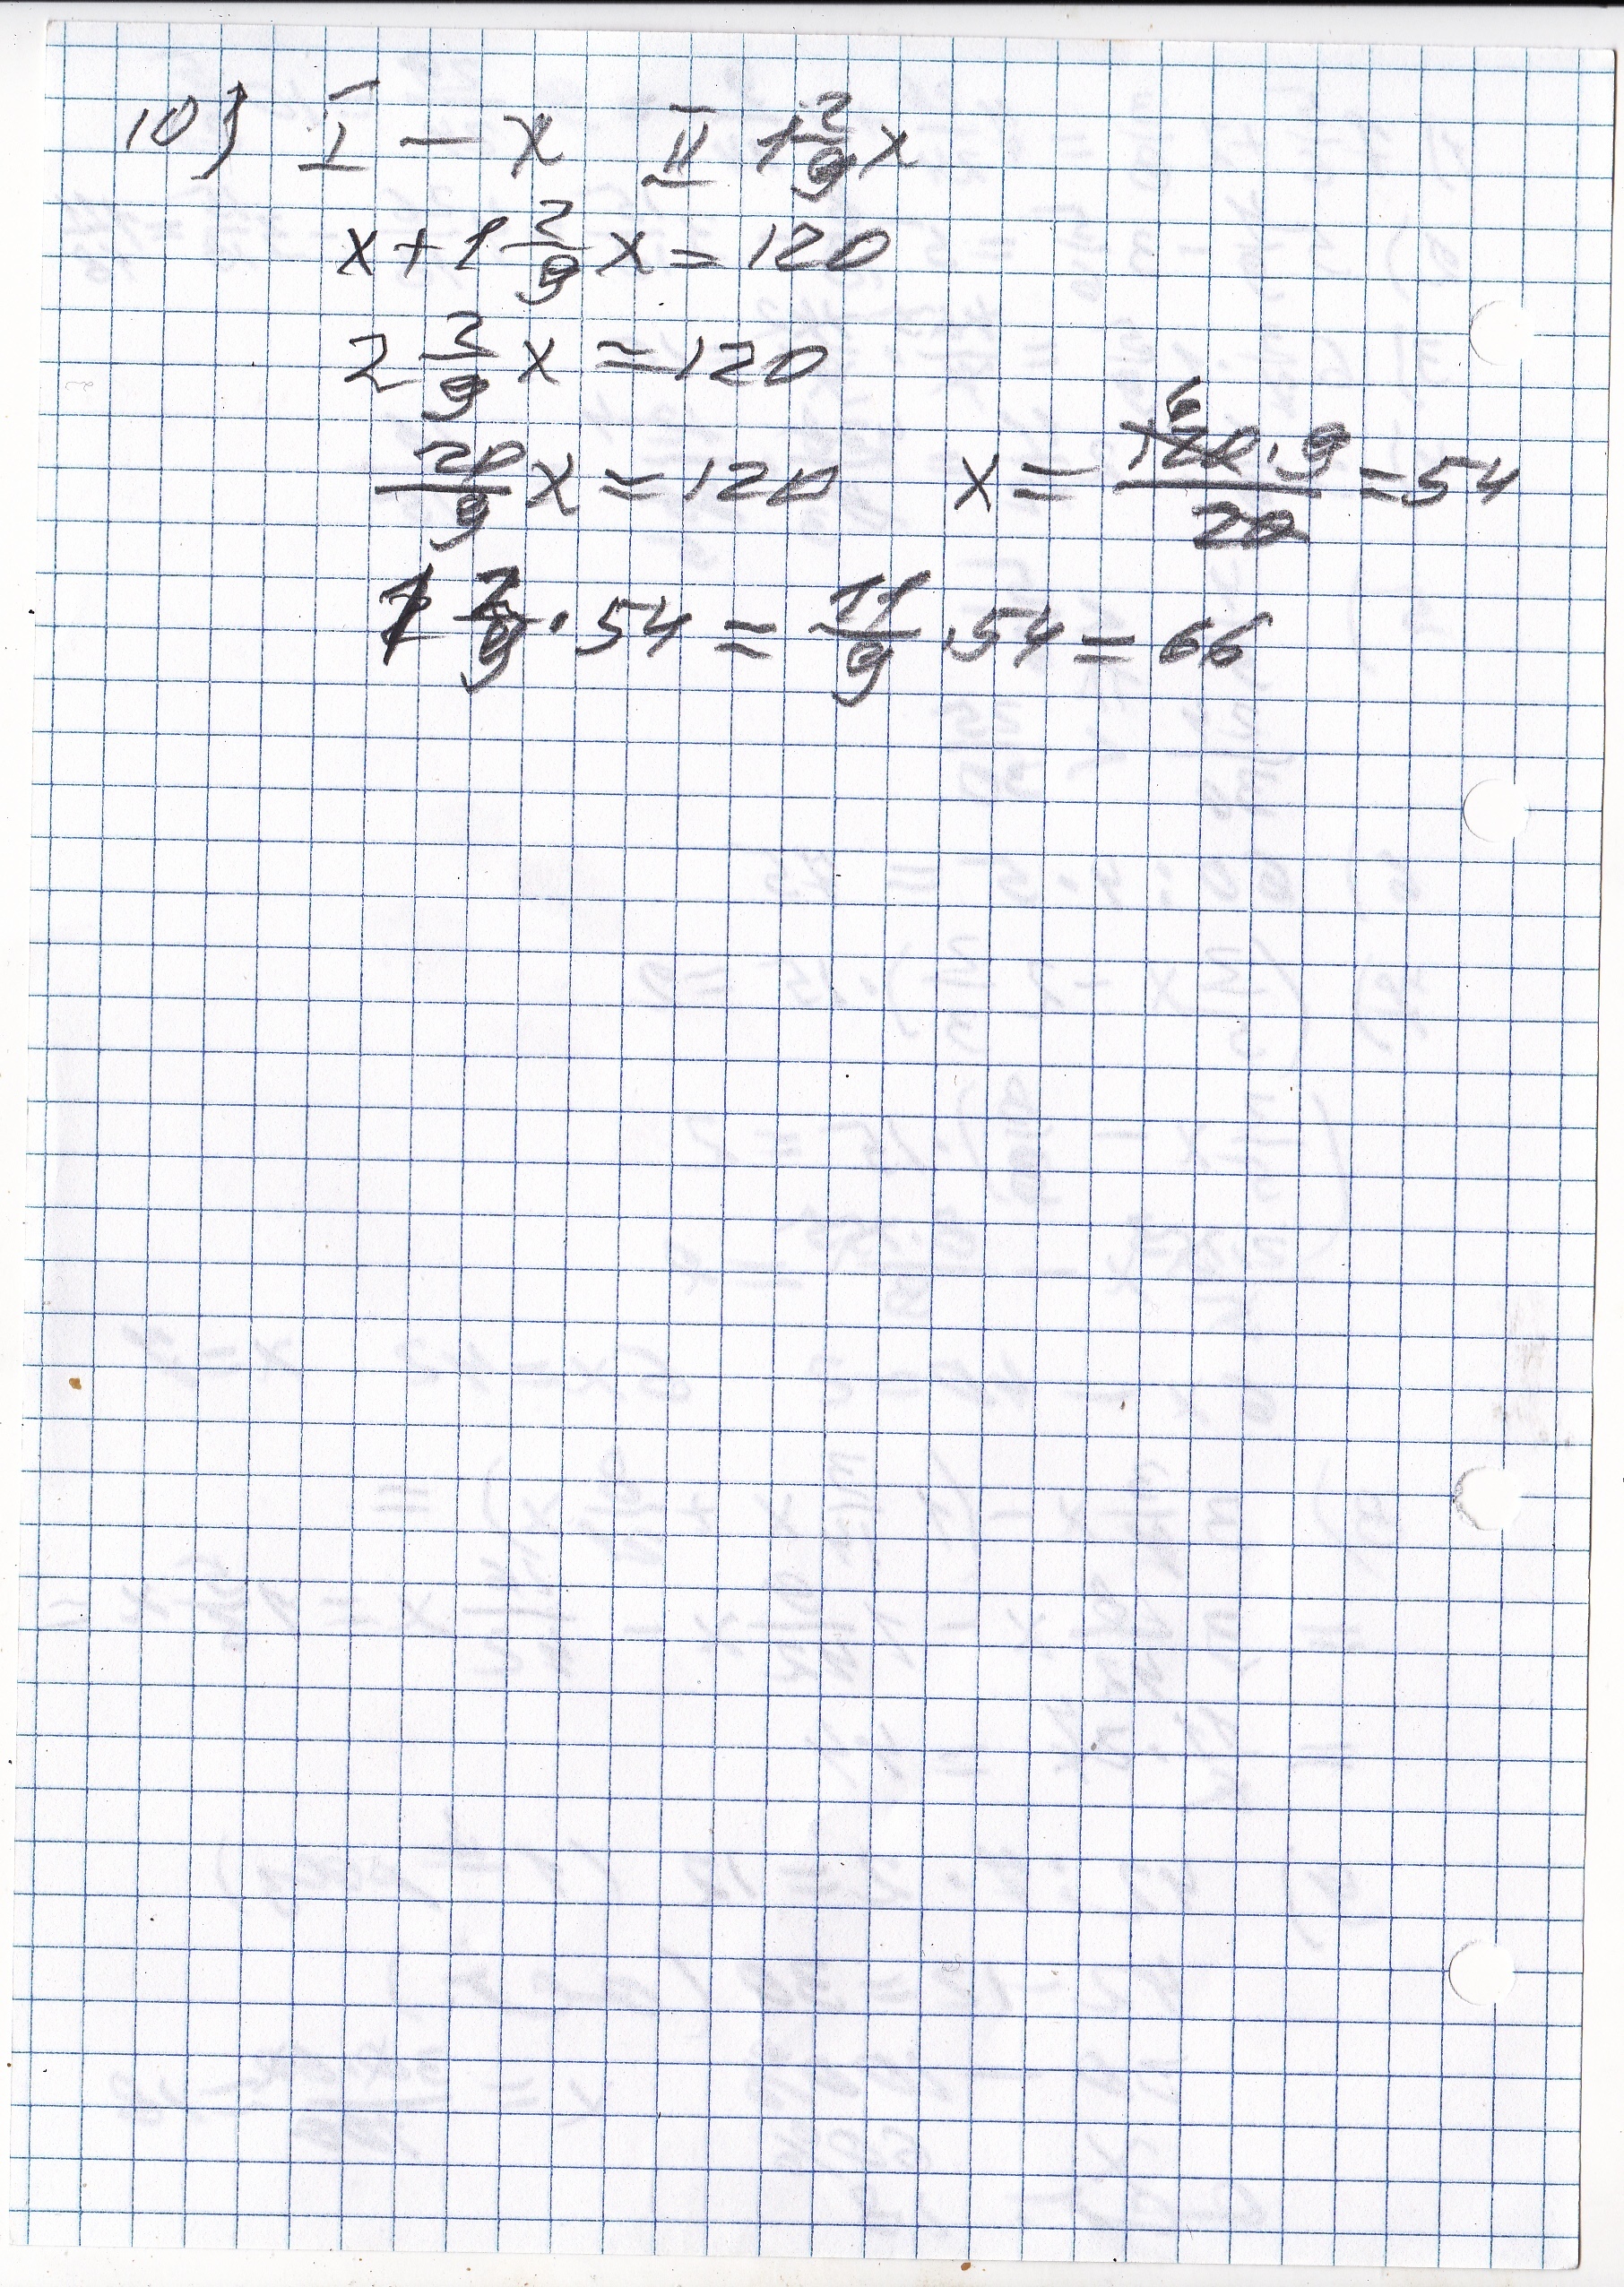 10) I — x II 1 2/9 x
x + 1 2/9 x = 120
2 2/9 x = 120
20/9 x = 120 x = 120 · 9 / 20 = 54
6
1 2/9 · 54 = 11/9 · 54 = 66